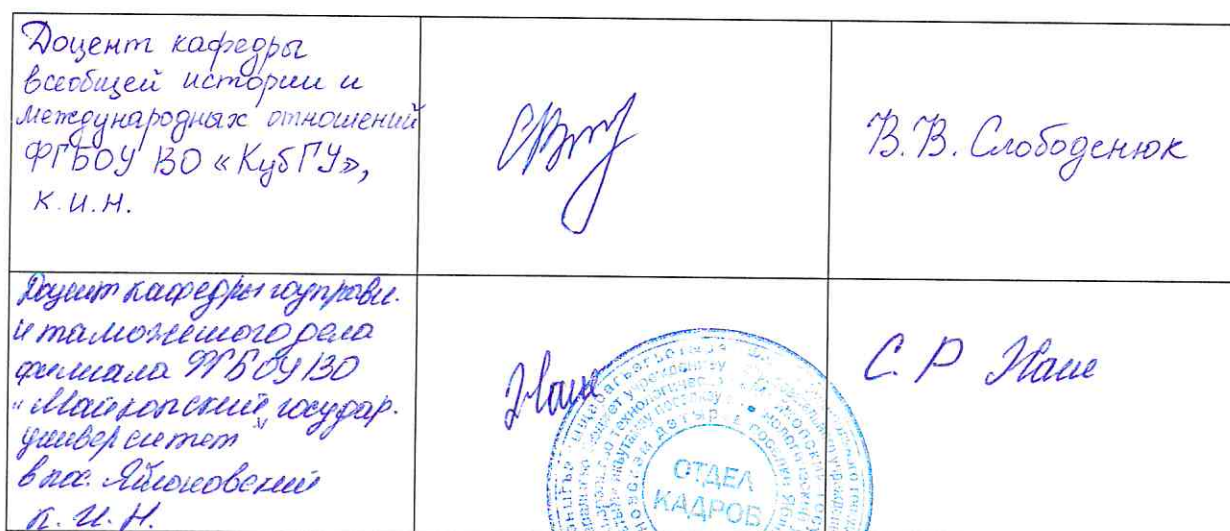 Доцент кафедры
всеобщей истории и
международных отношений
ФГБОУ ВО «КубГУ»,
к.и.н.
В.В. Слободенюк
Доцент кафедры госуправл.
и таможенного дела
филиала ФГБОУ ВО
"Майкопский государ.
университет"
в пос. Яблоновский
к.и.н.
С. Р
ОТДЕЛ
КАДРОВ